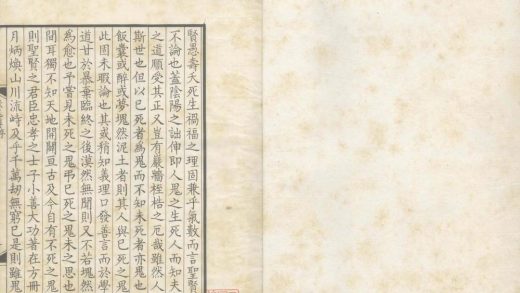 賢愚壽夭死生禍福之理固兼乎氣數而言聖賢
不論也蓋陰陽之詘伸即人鬼之生死人而知夫
之道順受其正又豈有巖牆桎梏之厄哉雖然人
斯世也但以已死者為鬼而不知未死者亦鬼也
飯囊或醉或夢塊然泥土者則其人與已死之鬼
此固未暇論也其或稍知義理口發善言而於學
道甘於暴棄臨終之後漠然無聞則又不若塊然
為愈也予嘗見未死之鬼弔已死之鬼未之思也
間耳獨不知天地開闢亘古及今自有不死之鬼
則聖賢之君臣忠孝之士子小善大功著在方冊
月炳煥山川流峙及乎千萬劫無窮已是則雖鬼